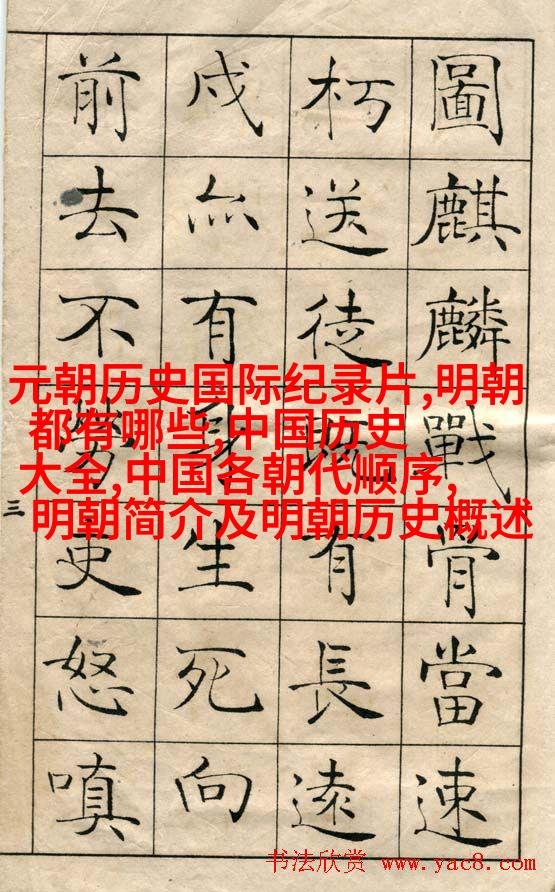 圖麒麟戰骨當速
朽送徒既有長遠
戍亦有身生死向
前去不勞吏怒嗔
三
元朝历史国际纪录片,明朝
都有哪些,中国历史
大全,中国各朝代顺序,
明朝简介及明朝历史概述
书法欣赏 www.yac8.com